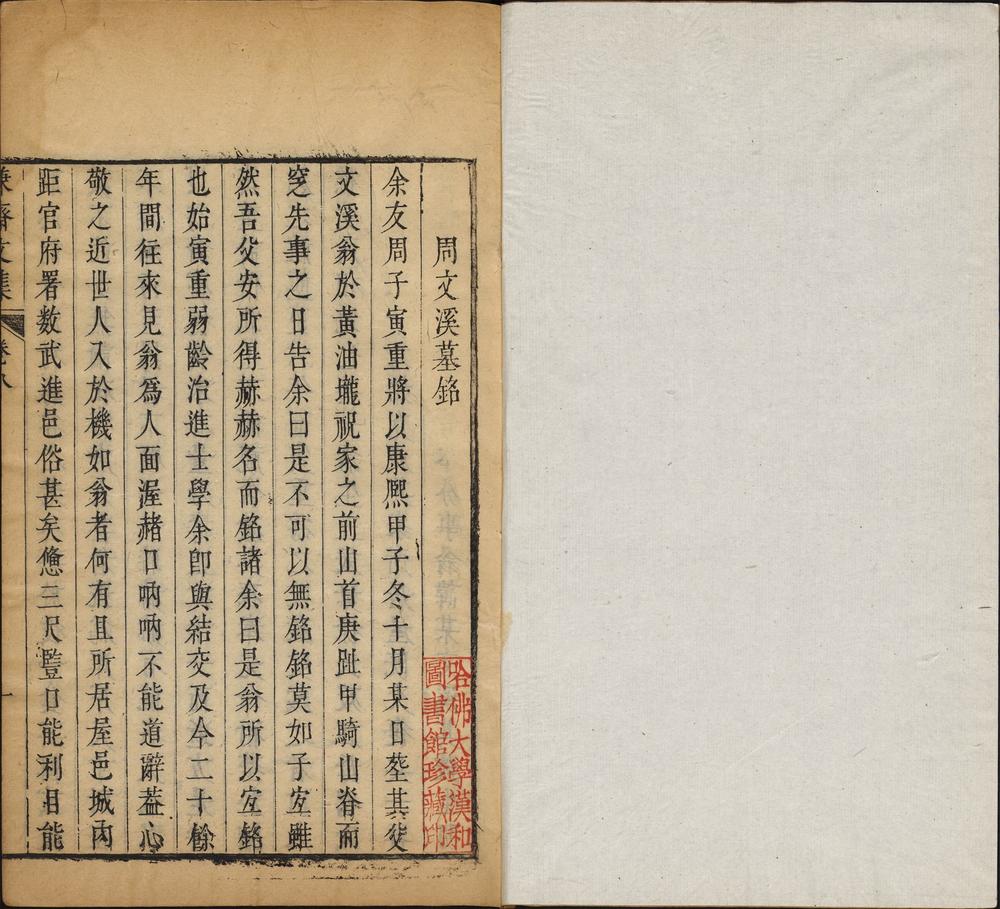 周文溪墓銘
余友周子寅重將以康熙甲子冬十月某日塟其父
文溪翁於黃油壠祝家之前山首庚趾甲騎山脊而
窆先事之日告余曰是不可以無銘銘莫如子宐雖
然吾父安所得赫赫名而銘諸余曰是翁所以宐銘
也始寅重弱齡治進士學余卽與結交及今二十餘
年間徃來見翁爲人面渥赭口吶吶不能道辭葢心
敬之近世人入於機如翁者何有且所居屋邑城內
距官府署数武進邑俗甚矣憊三尺豎口能利目能
兼齋文集
卷八
一
哈佛大學漢和
圖書館珍藏印